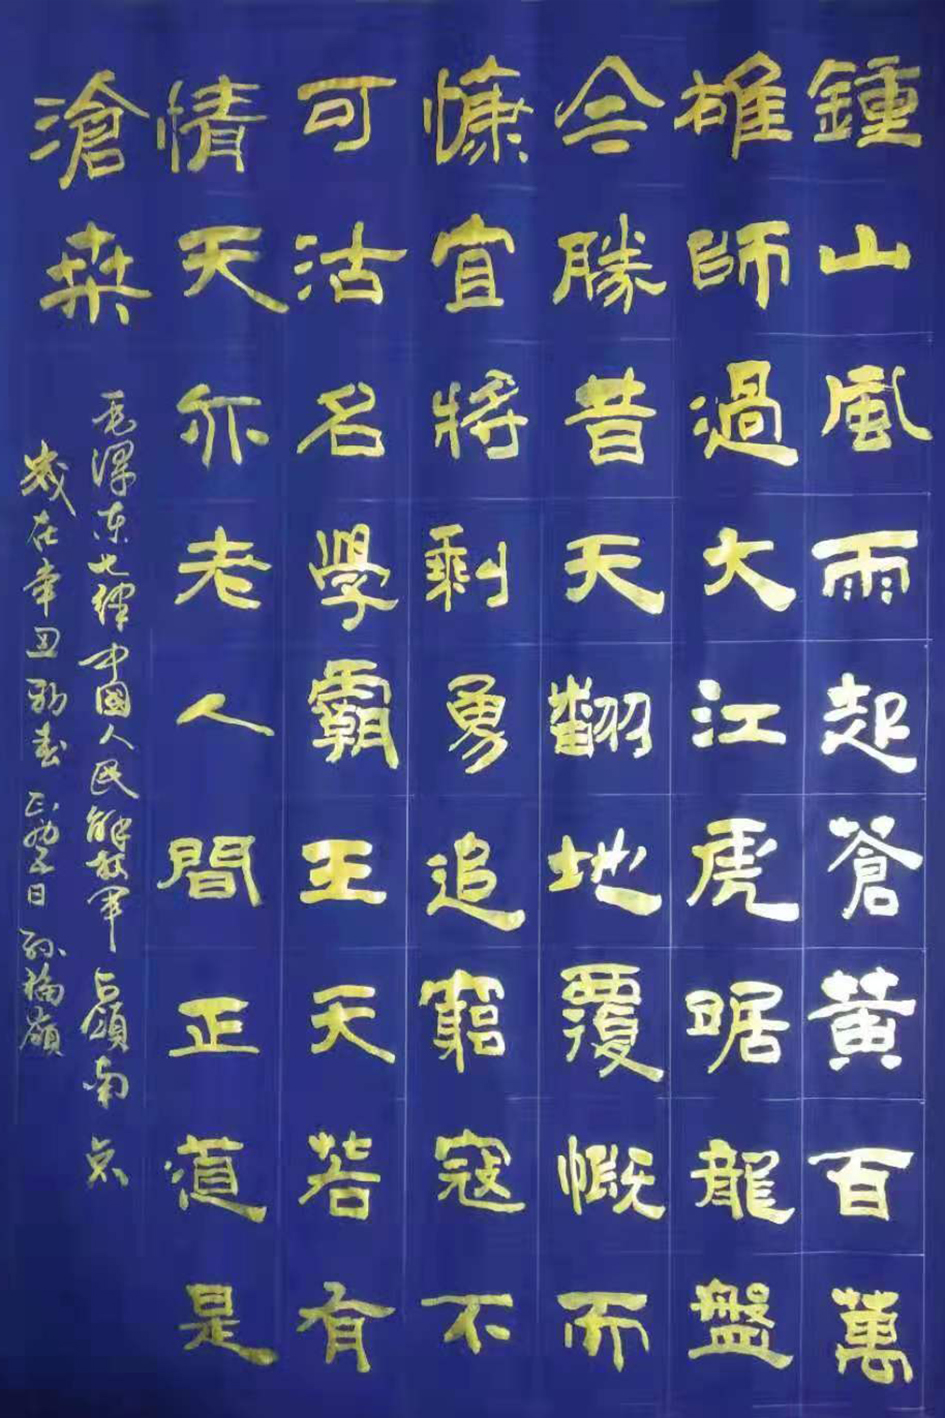 鍾山風雨起蒼黃百萬
雄師過大江虎踞龍盤
今勝昔天翻地覆慨而
慷宜將剩勇追窮寇不
可沽名學霸王天若有
情天亦老人間正道是
滄桑
毛澤東七律中國人民解放軍占領南京
歲在辛丑初春 日 孫福嶺